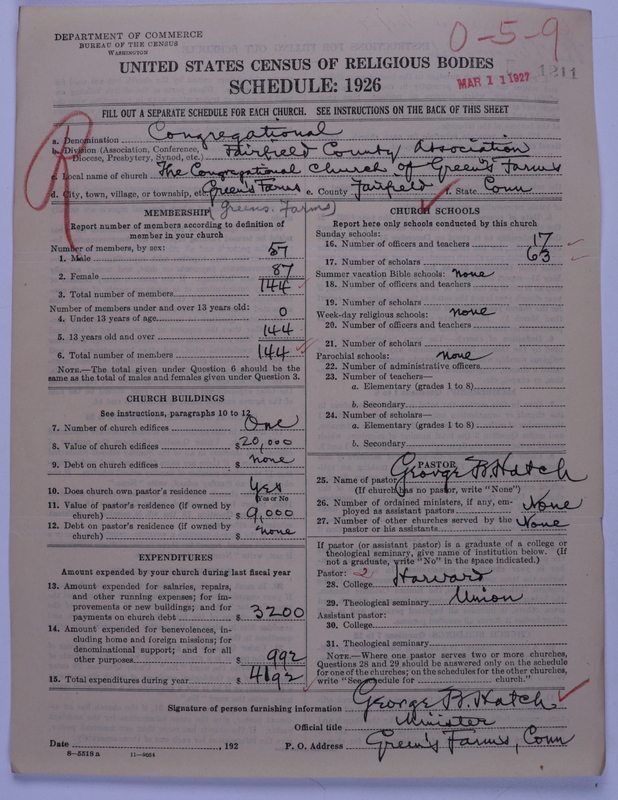 DEPARTMENT OF COMMERCE
BUREAU OF THE CENSUS
WASHINGTON
0-5-9
UNITED STATES CENSUS OF RELIGIOUS BODIES
SCHEDULE: 1926
MAR 11 1927 1211
FILL OUT A SEPARATE SCHEDULE FOR EACH CHURCH. SEE INSTRUCTIONS ON THE BACK OF THIS SHEET
R
a. Denomination Congregational
b. Division (Association, Conference, Diocese, Presbytery, Synod, etc.) Fairfield County Association
c. Local name of church The Congregational Church of Green's Farms
d. City, town, village, or township, etc. Green's Farms e. County Fairfield f. State Conn
(Greens Farms)
MEMBERSHIP
Report number of members according to definition of
member in your church
Number of members, by sex:
1. Male 57
2. Female 87
3. Total number of members 144
Number of members under and over 13 years old:
4. Under 13 years of age 0
5. 13 years old and over 144
6. Total number of members 144
NOTE.—The total given under Question 6 should be
same as the total of males and females given under Question 3.
CHURCH BUILDINGS
See instructions, paragraphs 10 to 12
7. Number of church edifices One
8. Value of church edifices $ 20,000
9. Debt on church edifices $ none
10. Does church own pastor's residence Yes
(Yes or No
11. Value of pastor's residence (if owned by
church) $ 9,000
12. Debt on pastor's residence (if owned by
church) $ none
EXPENDITURES
Amount expended by your church during last fiscal year
13. Amount expended for salaries, repairs,
and other running expenses; for im-
provements or new buildings; and for
payments on church debt $ 3200
14. Amount expended for benevolences, in-
cluding home and foreign missions; for
denominational support; and for all
other purposes $ 992
15. Total expenditures during year $ 4192
CHURCH SCHOOLS
Report here only schools conducted by this church
Sunday schools:
16. Number of officers and teachers 17
17. Number of scholars 63
Summer vacation Bible schools: none
18. Number of officers and teachers
19. Number of scholars
Week-day religious schools: none
20. Number of officers and teachers
21. Number of scholars
Parochial schools: none
22. Number of administrative officers
23. Number of teachers—
a. Elementary (grades 1 to 8)
b. Secondary
24. Number of scholars—
a. Elementary (grades 1 to 8)
b. Secondary
PASTOR
25. Name of pastor George B. Hatch
(If church has no pastor, write "None")
26. Number of ordained ministers, if any, em-
ployed as assistant pastors None
27. Number of other churches served by the
pastor or his assistants None
If pastor (or assistant pastor) is a graduate of a college or
theological seminary, give name of institution below. (If
not a graduate, write "No" in the space indicated.)
Pastor: 2
28. College Harvard
29. Theological seminary Union
Assistant pastor:
30. College
31. Theological seminary
NOTE.—Where one pastor serves two or more churches,
Questions 28 and 29 should be answered only on the schedule
for one of the churches; on the schedules for the other churches,
write "See schedule for church."
Signature of person furnishing information George B. Hatch
Official title Minister
Date , 192 P. O. Address Green's Farms, Conn
8—5519 a 11—8054